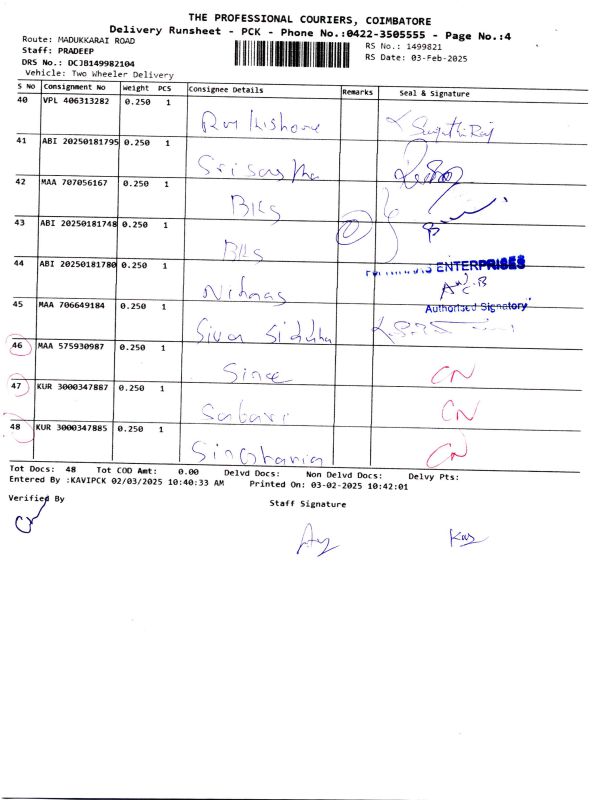 THE PROFESSIONAL COURIERS, COIMBATORE
Delivery Runsheet - PCK - Phone No.:0422-3505555 - Page No.:4
Route: MADUKKARAI ROAD
RS No.: 1499821
Staff: PRADEEP
RS Date: 03-Feb-2025
DRS No.: DCJB149982104
Vehicle: Two Wheeler Delivery
S No Consignment No Weight PCS Consignee Details Remarks Seal & Signature
40 VPL 406313282 0.250 1
41 ABI 20250181795 0.250 1
42 MAA 707056167 0.250 1 BKS
43 ABI 20250181748 0.250 1 BKS
44 ABI 20250181780 0.250 1 ENTERPRISES
Authorised Signatory
45 MAA 706649184 0.250 1 Siva
46 MAA 575930987 0.250 1 CN
47 KUR 3000347887 0.250 1 Sabari CN
48 KUR 3000347885 0.250 1 Singhania CN
Tot Docs: 48 Tot COD Amt: 0.00 Delvd Docs: Non Delvd Docs: Delvy Pts:
Entered By :KAVIPCK 02/03/2025 10:40:33 AM Printed On: 03-02-2025 10:42:01
Verified By Staff Signature